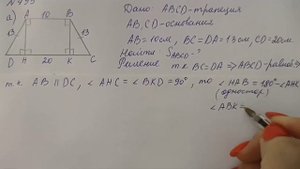 № 495
а)
A 10 B
13 13
D H 20 K C
Дано: ABCD-трапеция
AB, CD-основания
AB=10см, BC=DA=13см, CD=20см.
Найти S ABCD-?
Решение т.к BC=DA => ABCD-равноб
т.к. AB || DC, ∠AHC = ∠BKD=90°, то ∠HAB = 180°-∠AHC
(одностор)
∠ABK=